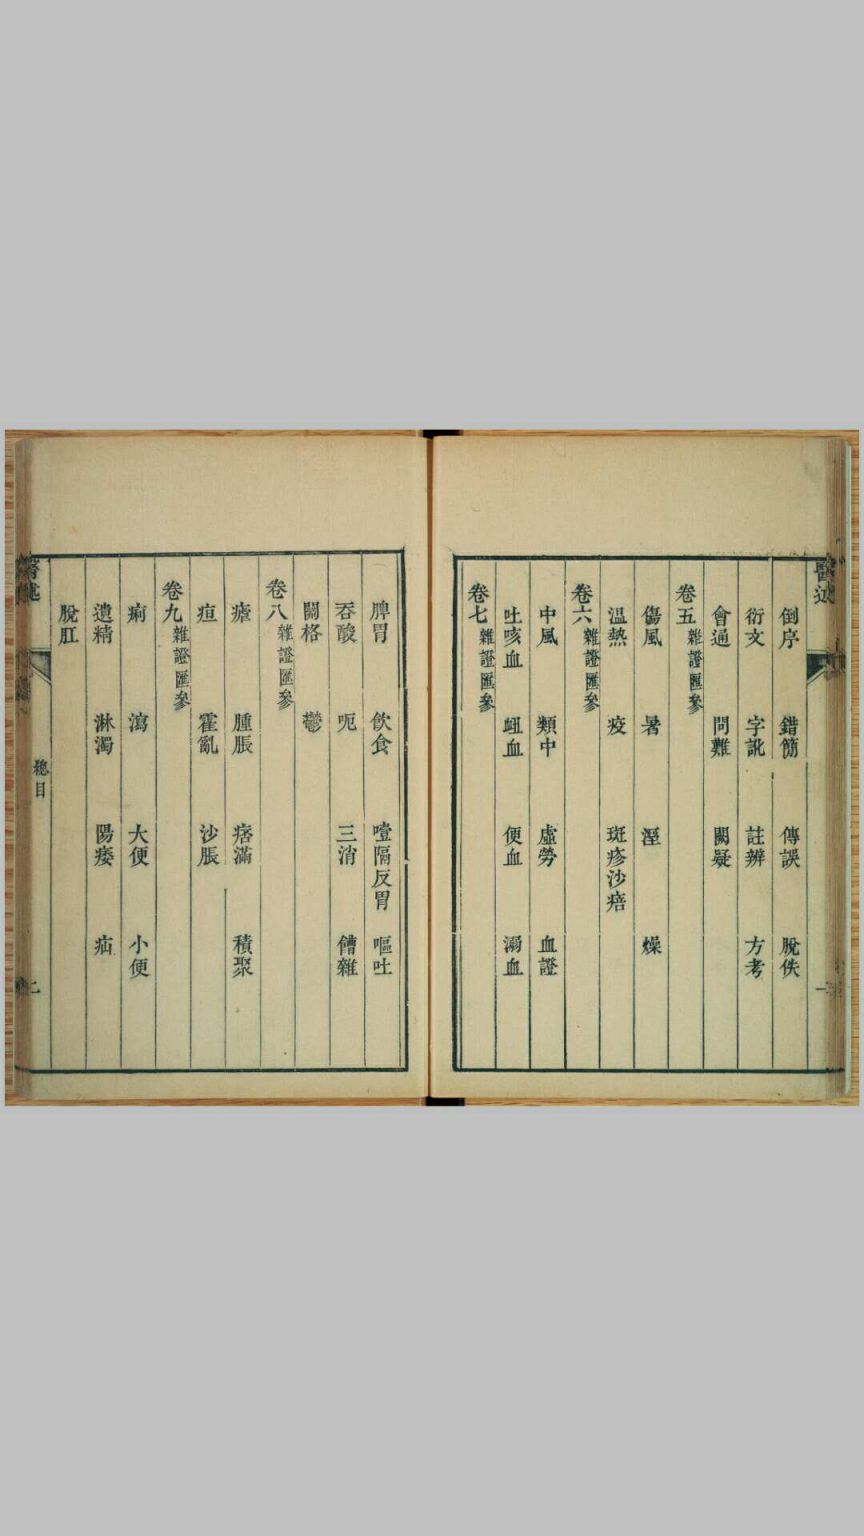 醫述
倒序　錯簡　傳誤　脫佚
衍文　字訛　註辨　方考
會通　問難　闕疑
卷五雜證匯參
傷風　暑　溼　燥
溫熱　疫　斑疹沙㾦
卷六雜證匯參
中風　類中　虛勞　血證
吐咳血　衄血　便血　溺血
卷七雜證匯參
脾胃　飲食　噎隔反胃　嘔吐
吞酸　呃　三消　嘈雜
關格　鬱
卷八雜證匯參
瘧　腫脹　痞滿　積聚
疸　霍亂　沙脹
卷九雜證匯參
痢　瀉　大便　小便
遺精　淋濁　陽痿　疝
脫肛
醫述
總目
二